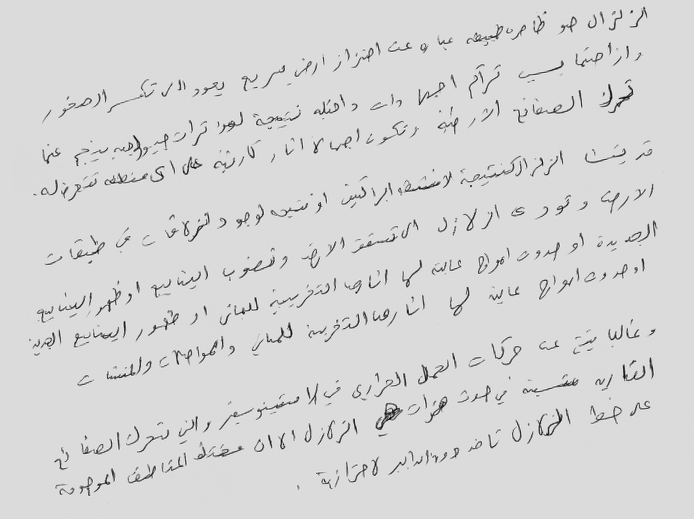 الزلزال هو ظاهره طبيعه عباره عن اهتزاز ارضي سريع يعود الى تكسر الصخور
وازاحتها بسبب تراكم اجهادات داخله نتيجة لمؤثرات جيولوجيه ينجم عنها
تحرك الصفائح الارضيه وتكون لها اثار كارثيه على اي منطقه تتعرض له.
قد ينشأ الزلزال كنتيجة لانشطه البراكين او نتيجه لوجود انزلاقات في طبقات
الارض وتودي الزلازل الى تشقق الارض ونضوب الينابيع او ظهور الينابيع
الجديدة او حدوث امواج عاليه لها اثارها التخريبية للمباني او ظهور الينابيع الجديده
اوحدوث امواج عاليه لها اثارها التخريبيه للمباني والمواصلات والمنشئات
وغالبا ينتج عن حركات الحمل الحراري في الاستينوسفير والتي تحرك الصفائح
القاريه متسببه في حدوث هزات هي الزلازل الا ان المناطق الموجودة
على خط الزلازل تاخذ التدابير لاحترازيه .